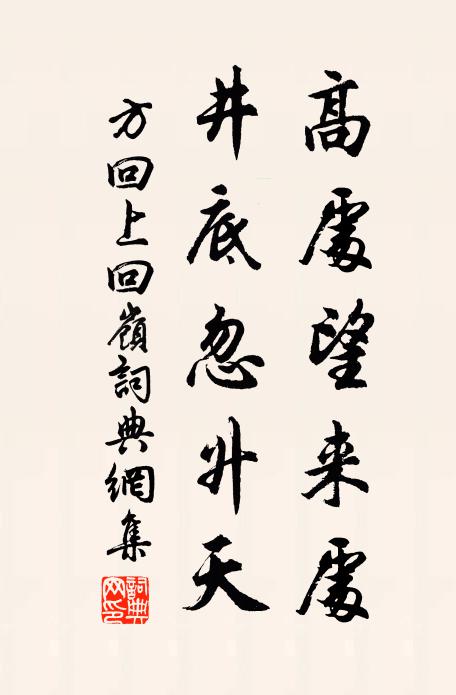 高處望来處
井底忽升天
方回上回嶺詞典網集
詞典网印